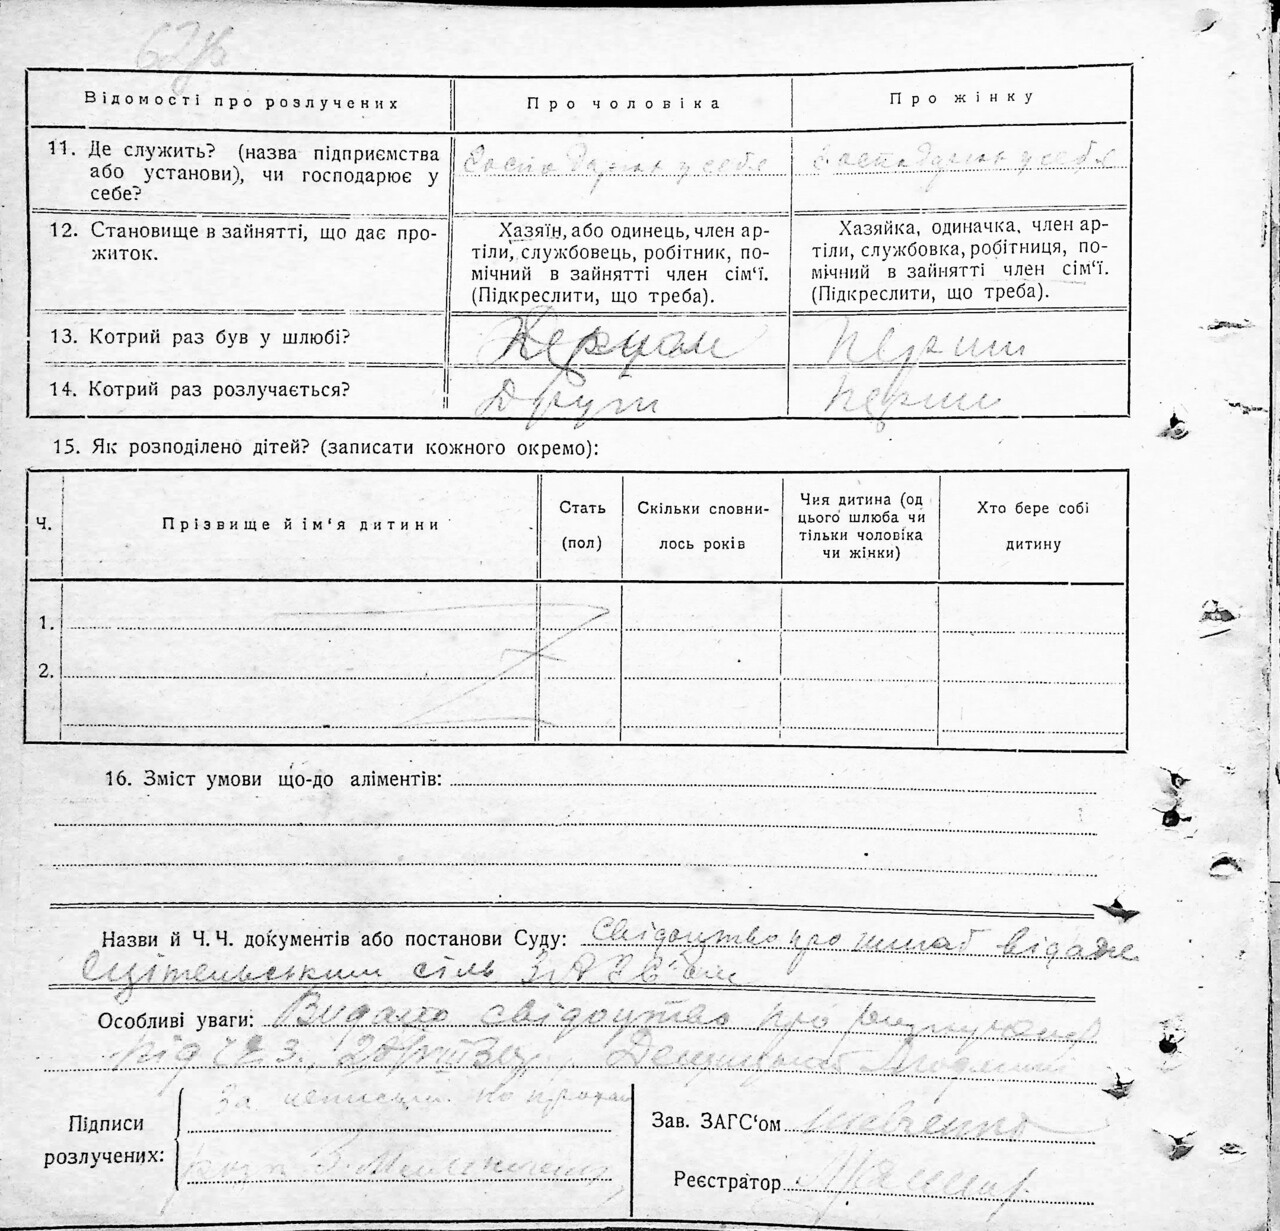 Відомості про розлучених
Про чоловіка
Про жінку
11. Де служить? (назва підприємства
або установи), чи господарює у
себе?
Господарює у себе
Господарює у себе
12. Становище в зайнятті, що дає про-
житок.
Хазяїн, або одинець, член ар-
тіли, службовець, робітник, по-
мічний в зайнятті член сім'ї.
(Підкреслити, що треба).
Хазяйка, одиначка, член ар-
тіли, службовка, робітниця, по-
мічний в зайнятті член сім'ї.
(Підкреслити, що треба).
13. Котрий раз був у шлюбі?
перший
14. Котрий раз розлучається?
Другий
перший
15. Як розподілено дітей? (записати кожного окремо):
Ч.
Прізвище й ім'я дитини
Стать
(пол)
Скільки сповни-
лось років
Чия дитина (од
цього шлюба чи
тільки чоловіка
чи жінки)
Хто бере собі
дитину
1.
2.
16. Зміст умови що-до аліментів:
Назви й Ч.Ч. документів або постанови Суду: Свідоцтво про шлюб видане
сіль
Особливі уваги: Видано свідоцтво про
під
Підписи
розлучених:
За
Зав. ЗАГС'ом Шевченко
Реєстратор